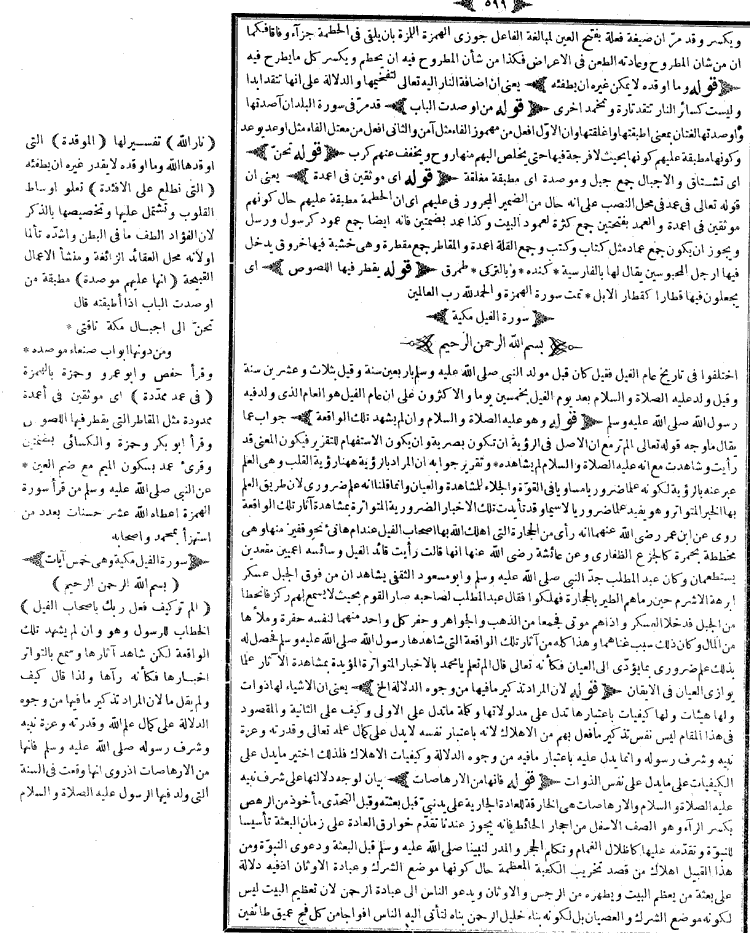 ٥٩٩
ويكسر وقد مر ان صيغة فعلة بفتح العين لمبالغة الفاعل جوزى الهمزة اللمزة بان يلقى فى الحطمة جزاء وفاقا فكما
ان من شان المطروح وعادته الطعن فى الاعراض فكذا من شأن المطروح فيه ان يحطم ويكسر كل ما يطرح فيه
قوله وما اوقده لا يمكن غيره ان يطفئه يعنى ان اضافة النار اليه تعالى لتفخيمها والدلالة على انها تتقد ابدا
وليست كسائر النار تتقد تارة وتخمد اخرى قوله من اوصدت الباب قد مر فى سورة البلد ان آصدتها
واوصدتها لغتان بمعنى اطبقتها واغلقتها وان الاول افعل من مهموز الفاء مثل آمن والثانى افعل من معتل الفاء مثل اوعد يوعد
وكونها مطبقة عليهم كونها بحيث لا فرجة فيها حتى يخلص اليهم منها روح ويخفف عنهم كرب قوله تحن
اى تشتاق والاجبال جمع جبل وموصدة اى مطبقة مغلقة قوله اى موثقين فى اعمدة يعنى ان
قوله تعالى فى عمد فى محل النصب على انه حال من الضمير المجرور فى عليهم اى ان الحطمة مطبقة عليهم حال كونهم
موثقين فى اعمدة والعمد بفتحتين جمع كثرة لعمود البيت وكذا عمد بضمتين فانه ايضا جمع عمود كرسول ورسل
ويجوز ان يكون جمع عماد مثل كتاب وكتب وجمع القلة اعمدة والمقاطر جمع مقطرة وهى خشبة فيها خروق يدخل
فيها ارجل المحبوسين يقال لها بالفارسية * كنده * وبالتركى * طمرق قوله يقطر فيها اللصوص اى
يجعلون فيها قطارا كقطار الابل * تمت سورة الهمزة والحمد لله رب العالمين
سورة الفيل مكية
بسم الله الرحمن الرحيم
اختلفوا فى تاريخ عام الفيل فقيل كان قبل مولد النبى صلى الله عليه وسلم باربعين سنة وقيل بثلاث وعشرين سنة
وقيل ولد عليه الصلاة والسلام بعد يوم الفيل بخمسين يوما والاكثرون على ان عام الفيل هو العام الذى ولد فيه
رسول الله صلى الله عليه وسلم قوله وهو عليه الصلاة والسلام وان لم يشهد تلك الواقعة جواب عما
يقال ما وجه قوله تعالى الم تر مع ان الاصل فى الرؤية ان تكون بصرية وان يكون الاستفهام للتقرير فيكون المعنى قد
رأيت وشاهدت مع انه عليه الصلاة والسلام لم يشاهده * وتقرير جوابه ان المراد بالرؤية ههنا رؤية القلب وهى العلم
عبر عنه بالرؤية لكونه علما ضروريا مساويا فى القوة والجلاء للمشاهدة والعيان وانما قلنا انه علم ضرورى لان طريق العلم
بها الخبر المتواتر وهو يفيد علما ضروريا لا سيما وقد تأيدت تلك الاخبار الضرورية المتواترة بمشاهدة آثار تلك الواقعة
روى عن ابن عمر رضى الله عنهما انه رأى من الحجارة التى اهلك الله بها اصحاب الفيل عند ام هانئ نحو قفيز منها وهى
مخططة بحمرة كالجزع الظفارى وعن عائشة رضى الله عنها انها قالت رأيت قائد الفيل وسائسه اعميين مقعدين
يستطعمان وكان عبد المطلب جد النبى صلى الله عليه وسلم وابو مسعود الثقفى يشاهدان من فوق الجبل عسكر
ابرهة الاشرم حين رماهم الطير بالحجارة فهلكوا فقال عبد المطلب لصاحبه صار القوم بحيث لا يسمع لهم ركز فانحطا
من الجبل فدخلا العسكر واذاهم موتى فجمعا من الذهب والجواهر وحفر كل واحد منهما لنفسه حفرة وملأها
من المال وكان ذلك سبب غناهما وهذا كله من آثار تلك الواقعة التى شاهدها رسول الله صلى الله عليه وسلم فحصل له
بذلك علم ضرورى بما يؤدى الى العيان فكأنه تعالى قال الم تعلم يا محمد بالاخبار المتواترة المؤيدة بمشاهدة الآثار علما
يوازى العيان فى الايقان قوله لان المراد تذكير ما فيها من وجوه الدلالة الخ يعنى ان الاشياء لها ذوات
ولها هيئات ولها كيفيات باعتبارها تدل على مدلولاتها وكلمة ما تدل على الاولى وكيف على الثانية والمقصود
فى هذا المقام ليس نفس تذكير ما فعل بهم من الاهلاك لانه باعتبار نفسه لا يدل على كمال عمله تعالى وقدرته وعزة
نبيه وشرف رسوله وانما يدل عليه باعتبار ما فيه من وجوه الدلالة وكيفيات الاهلاك فلذلك اختير ما يدل على
الكيفيات على ما يدل على نفس الذوات قوله فانها من الارهاصات بيان لوجه دلالتها على شرف نبيه
عليه الصلاة والسلام والارهاصات هى الخارقة للعادة الجارية على يد نبى قبل بعثته وقبل التحدى مأخوذ من الرهص
بكسر الراء وهو الصف الاسفل من احجار الحائط فانه يجوز عندنا تقدم خوارق العادة على زمان البعثة تأسيسا
للنبوة وتقدمه عليها كاظلال الغمام وتكلم الحجر والمدر لنبينا صلى الله عليه وسلم قبل البعثة ودعوى النبوة ومن
هذا القبيل اهلاك من قصد تخريب الكعبة المعظمة حال كونها موضع الشرك وعبادة الاوثان اذ فيه دلالة
على بعثة من يعظم البيت ويطهره من الرجس والاوثان ويدعو الناس الى عبادة الرحمن لان تعظيم البيت ليس
لكونه موضع الشرك والعصيان بل لكونه بناء خليل الرحمن بناه لتأتى اليه الناس افواجا من كل فج عميق طائفين
( نار الله ) تفسير لها ( الموقدة ) التى
اوقدها الله وما اوقده لا يقدر غيره ان يطفئه
( التى تطلع على الافئدة ) تعلو اوساط
القلوب وتشتمل عليها وتخصيصها بالذكر
لان الفؤاد الطف ما فى البطن واشده تألما
او لانه محل العقائد الزائغة ومنشأ الاعمال
القبيحة ( انها عليهم موصدة ) مطبقة من
اوصدت الباب اذا اطبقته قال
تحن الى اجبال مكة ناقتى *
ومن دونها ابواب صنعاء موصده *
وقرأ حفص وابو عمرو وحمزة بالهمزة
( فى عمد ممددة ) اى موثقين فى اعمدة
ممدودة مثل المقاطر التى يقطر فيها اللصوص
وقرأ ابو بكر وحمزة والكسائى بضمتين
وقرئ عمد بسكون الميم مع ضم العين *
عن النبى صلى الله عليه وسلم من قرأ سورة
الهمزة اعطاه الله عشر حسنات بعدد من
استهزأ بمحمد واصحابه
سورة الفيل مكية وهى خمس آيات
( بسم الله الرحمن الرحيم )
( الم تر كيف فعل ربك باصحاب الفيل )
الخطاب للرسول وهو وان لم يشهد تلك
الواقعة لكن شاهد آثارها وسمع بالتواتر
اخبارها فكأنه رآها ولذا قال كيف
ولم يقل ما لان المراد تذكير ما فيها من وجوه
الدلالة على كمال علم الله وقدرته وعزة نبيه
وشرف رسوله صلى الله عليه وسلم فانها
من الارهاصات اذ روى انها وقعت فى السنة
التى ولد فيها الرسول عليه الصلاة والسلام